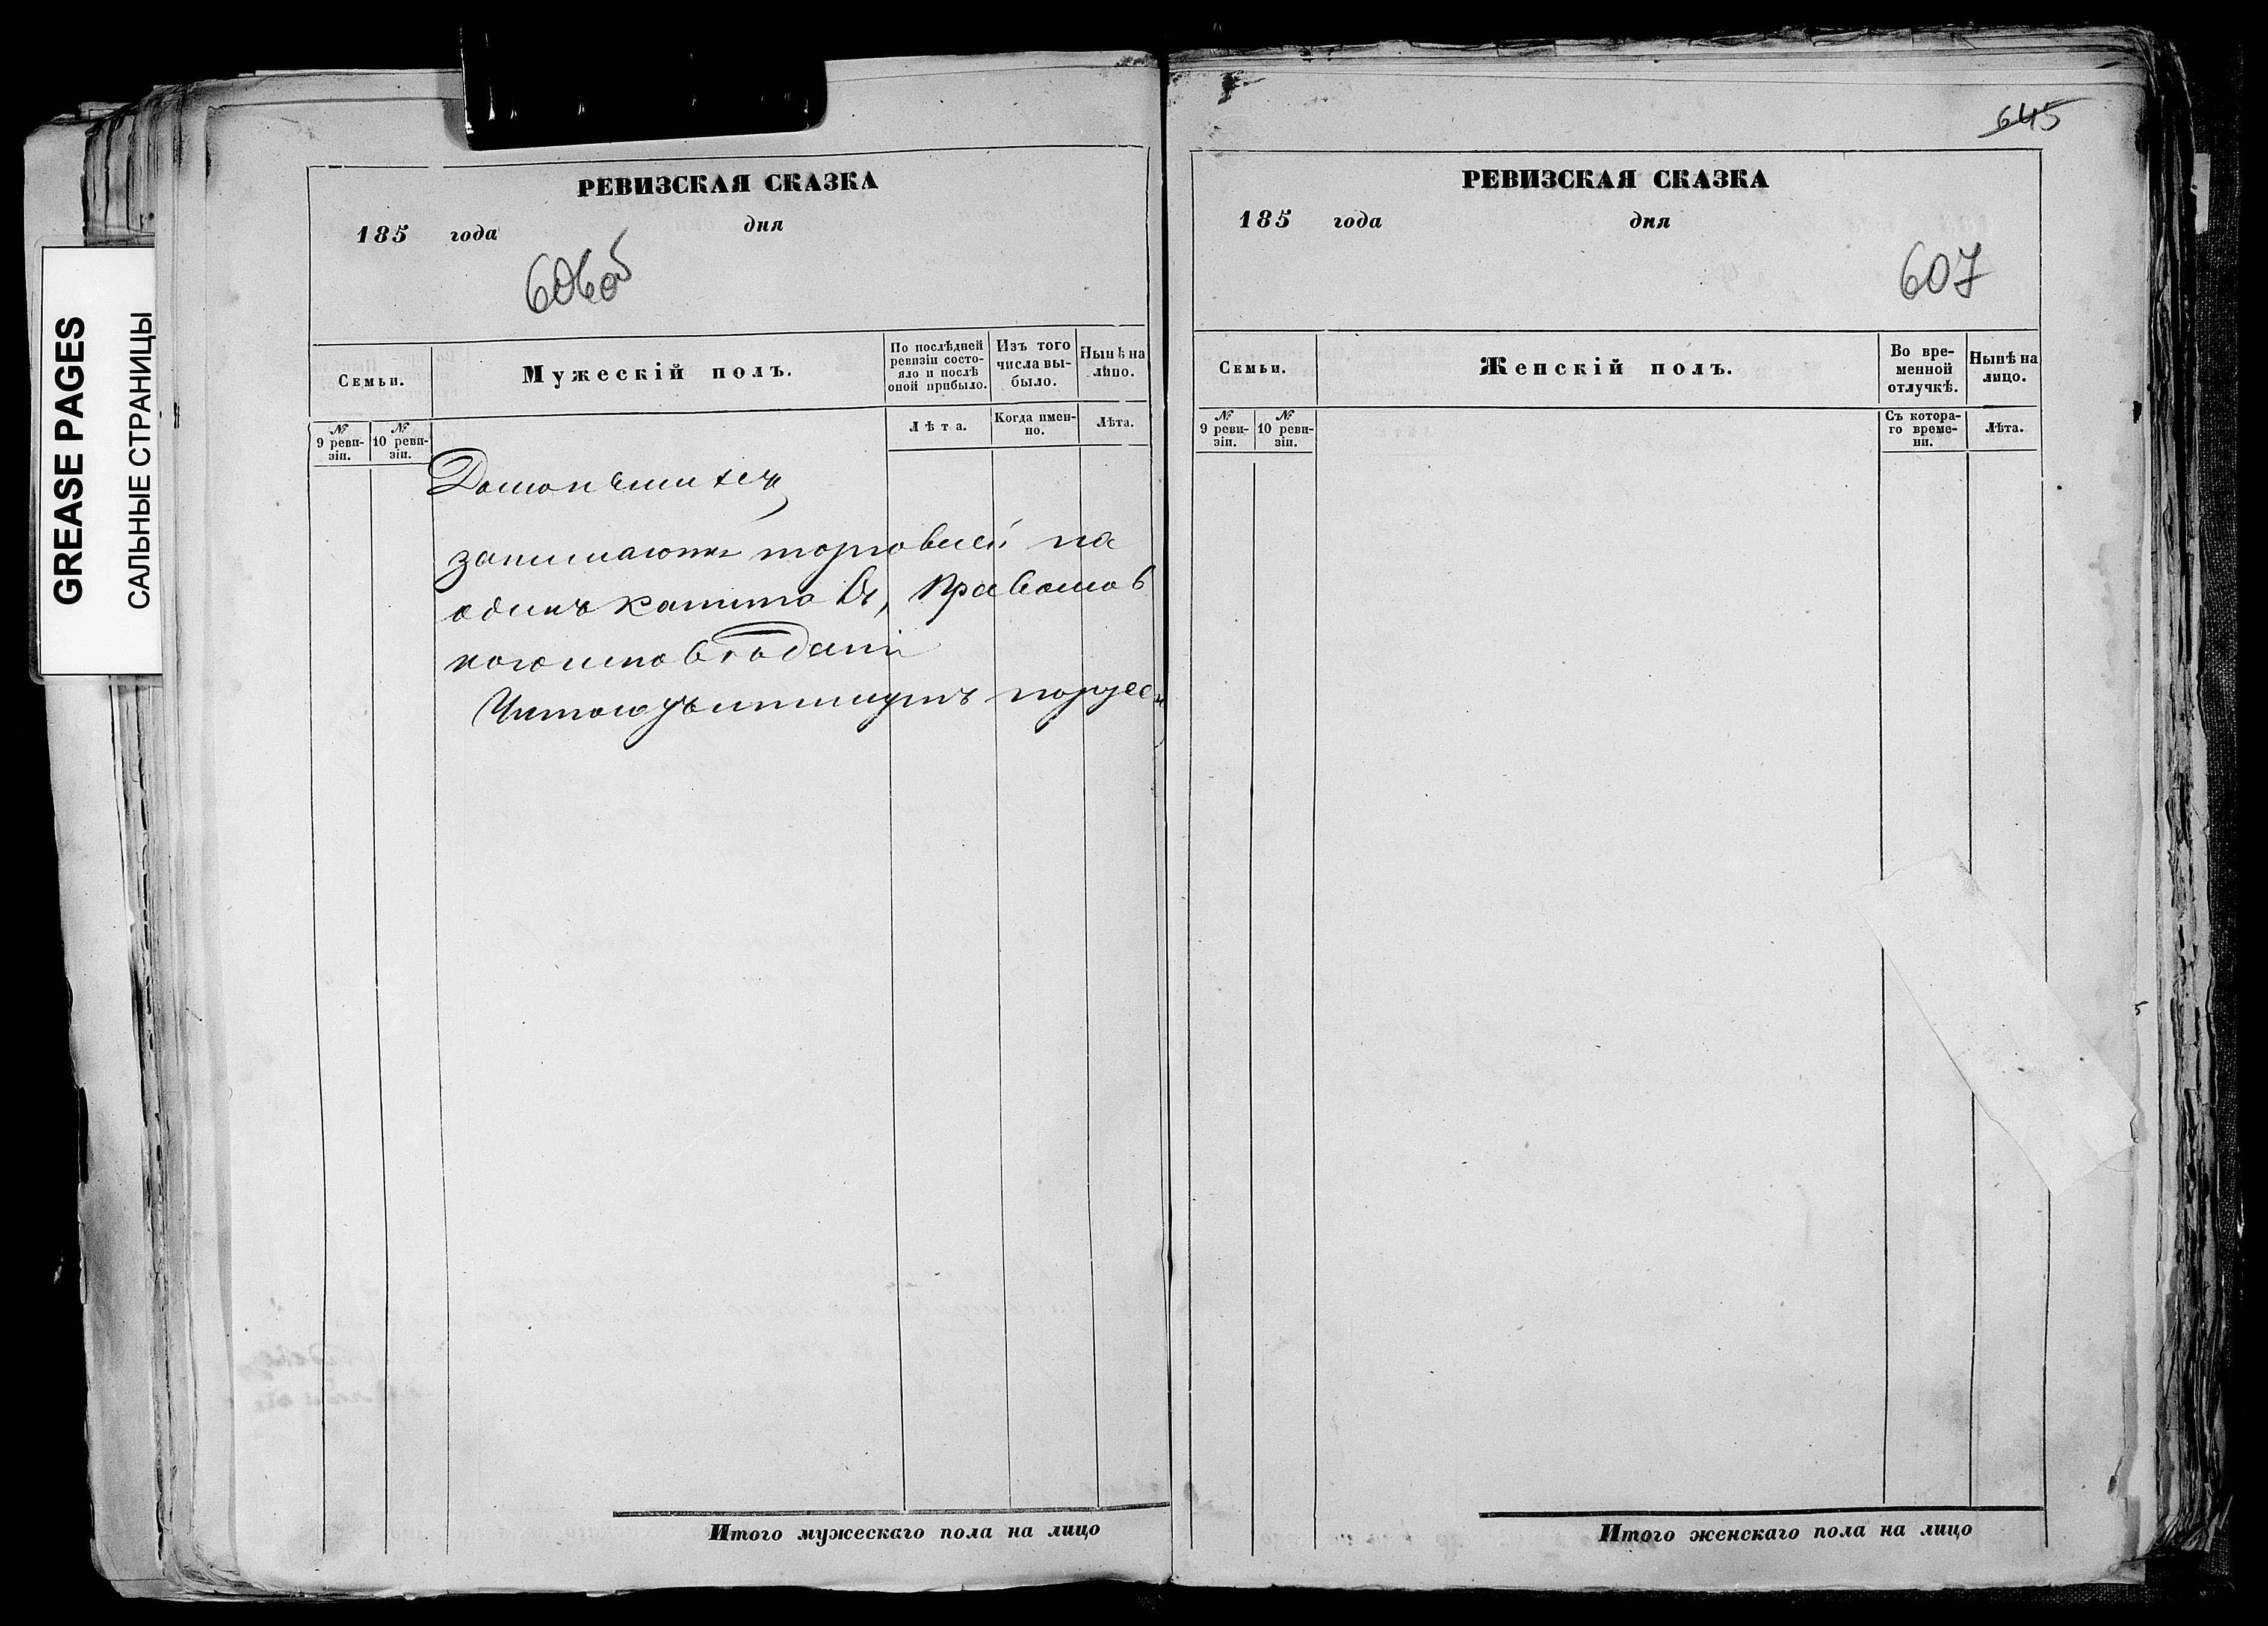 645
РЕВИЗСКАЯ СКАЗКА
185 года дня
606об
Семьи.
Мужескій полъ.
По послѣдней ревизіи состояло и послѣ оной прибыло.
Изъ того числа выбыло.
Нынѣ на лицо.
№ 9 ревизіи.
№ 10 ревизіи.
Лѣта.
Когда именно.
Лѣта.
занимаются торговлей на
одинъ капиталъ,
Итого мужескаго пола на лицо
РЕВИЗСКАЯ СКАЗКА
185 года дня
607
Семьи.
Женскій полъ.
Во временной отлучкѣ.
Нынѣ на лицо.
№ 9 ревизіи.
№ 10 ревизіи.
Съ котораго времени.
Лѣта.
Итого женскаго пола на лицо
GREASE PAGES
САЛЬНЫЕ СТРАНИЦЫ